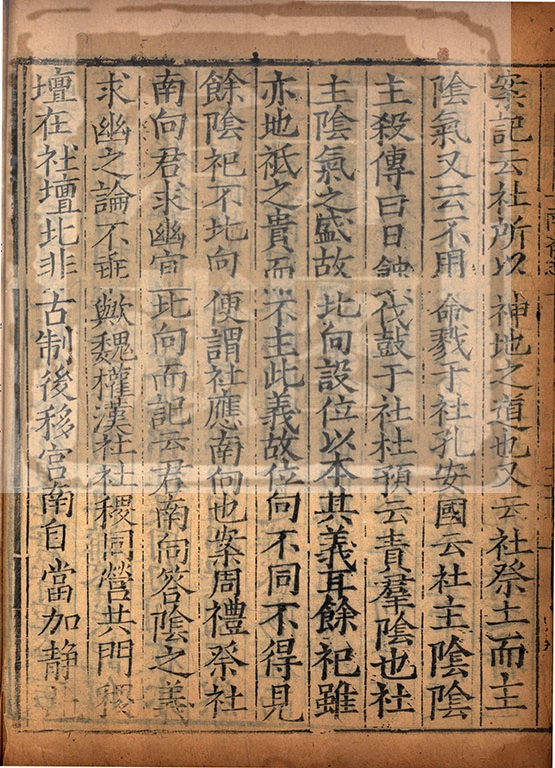 案記云社所以神地之道也又云社祭土而主
陰氣又云不用命戮于社孔安國云社主陰陰
主殺傳曰日蝕伐鼓于社杜預云責羣陰也社
主陰氣之盛故北向設位以本其義耳餘祀雖
亦地祇之貴而不主此義故位向不同不得見
餘陰祀不北向便謂社應南向也案周禮祭社
南向君求幽宜北向而記云君南向答陰之義
求幽之論不乖歟魏權漢社社稷同營共門稷
壇在社壇北非古制後移宮南自當加静